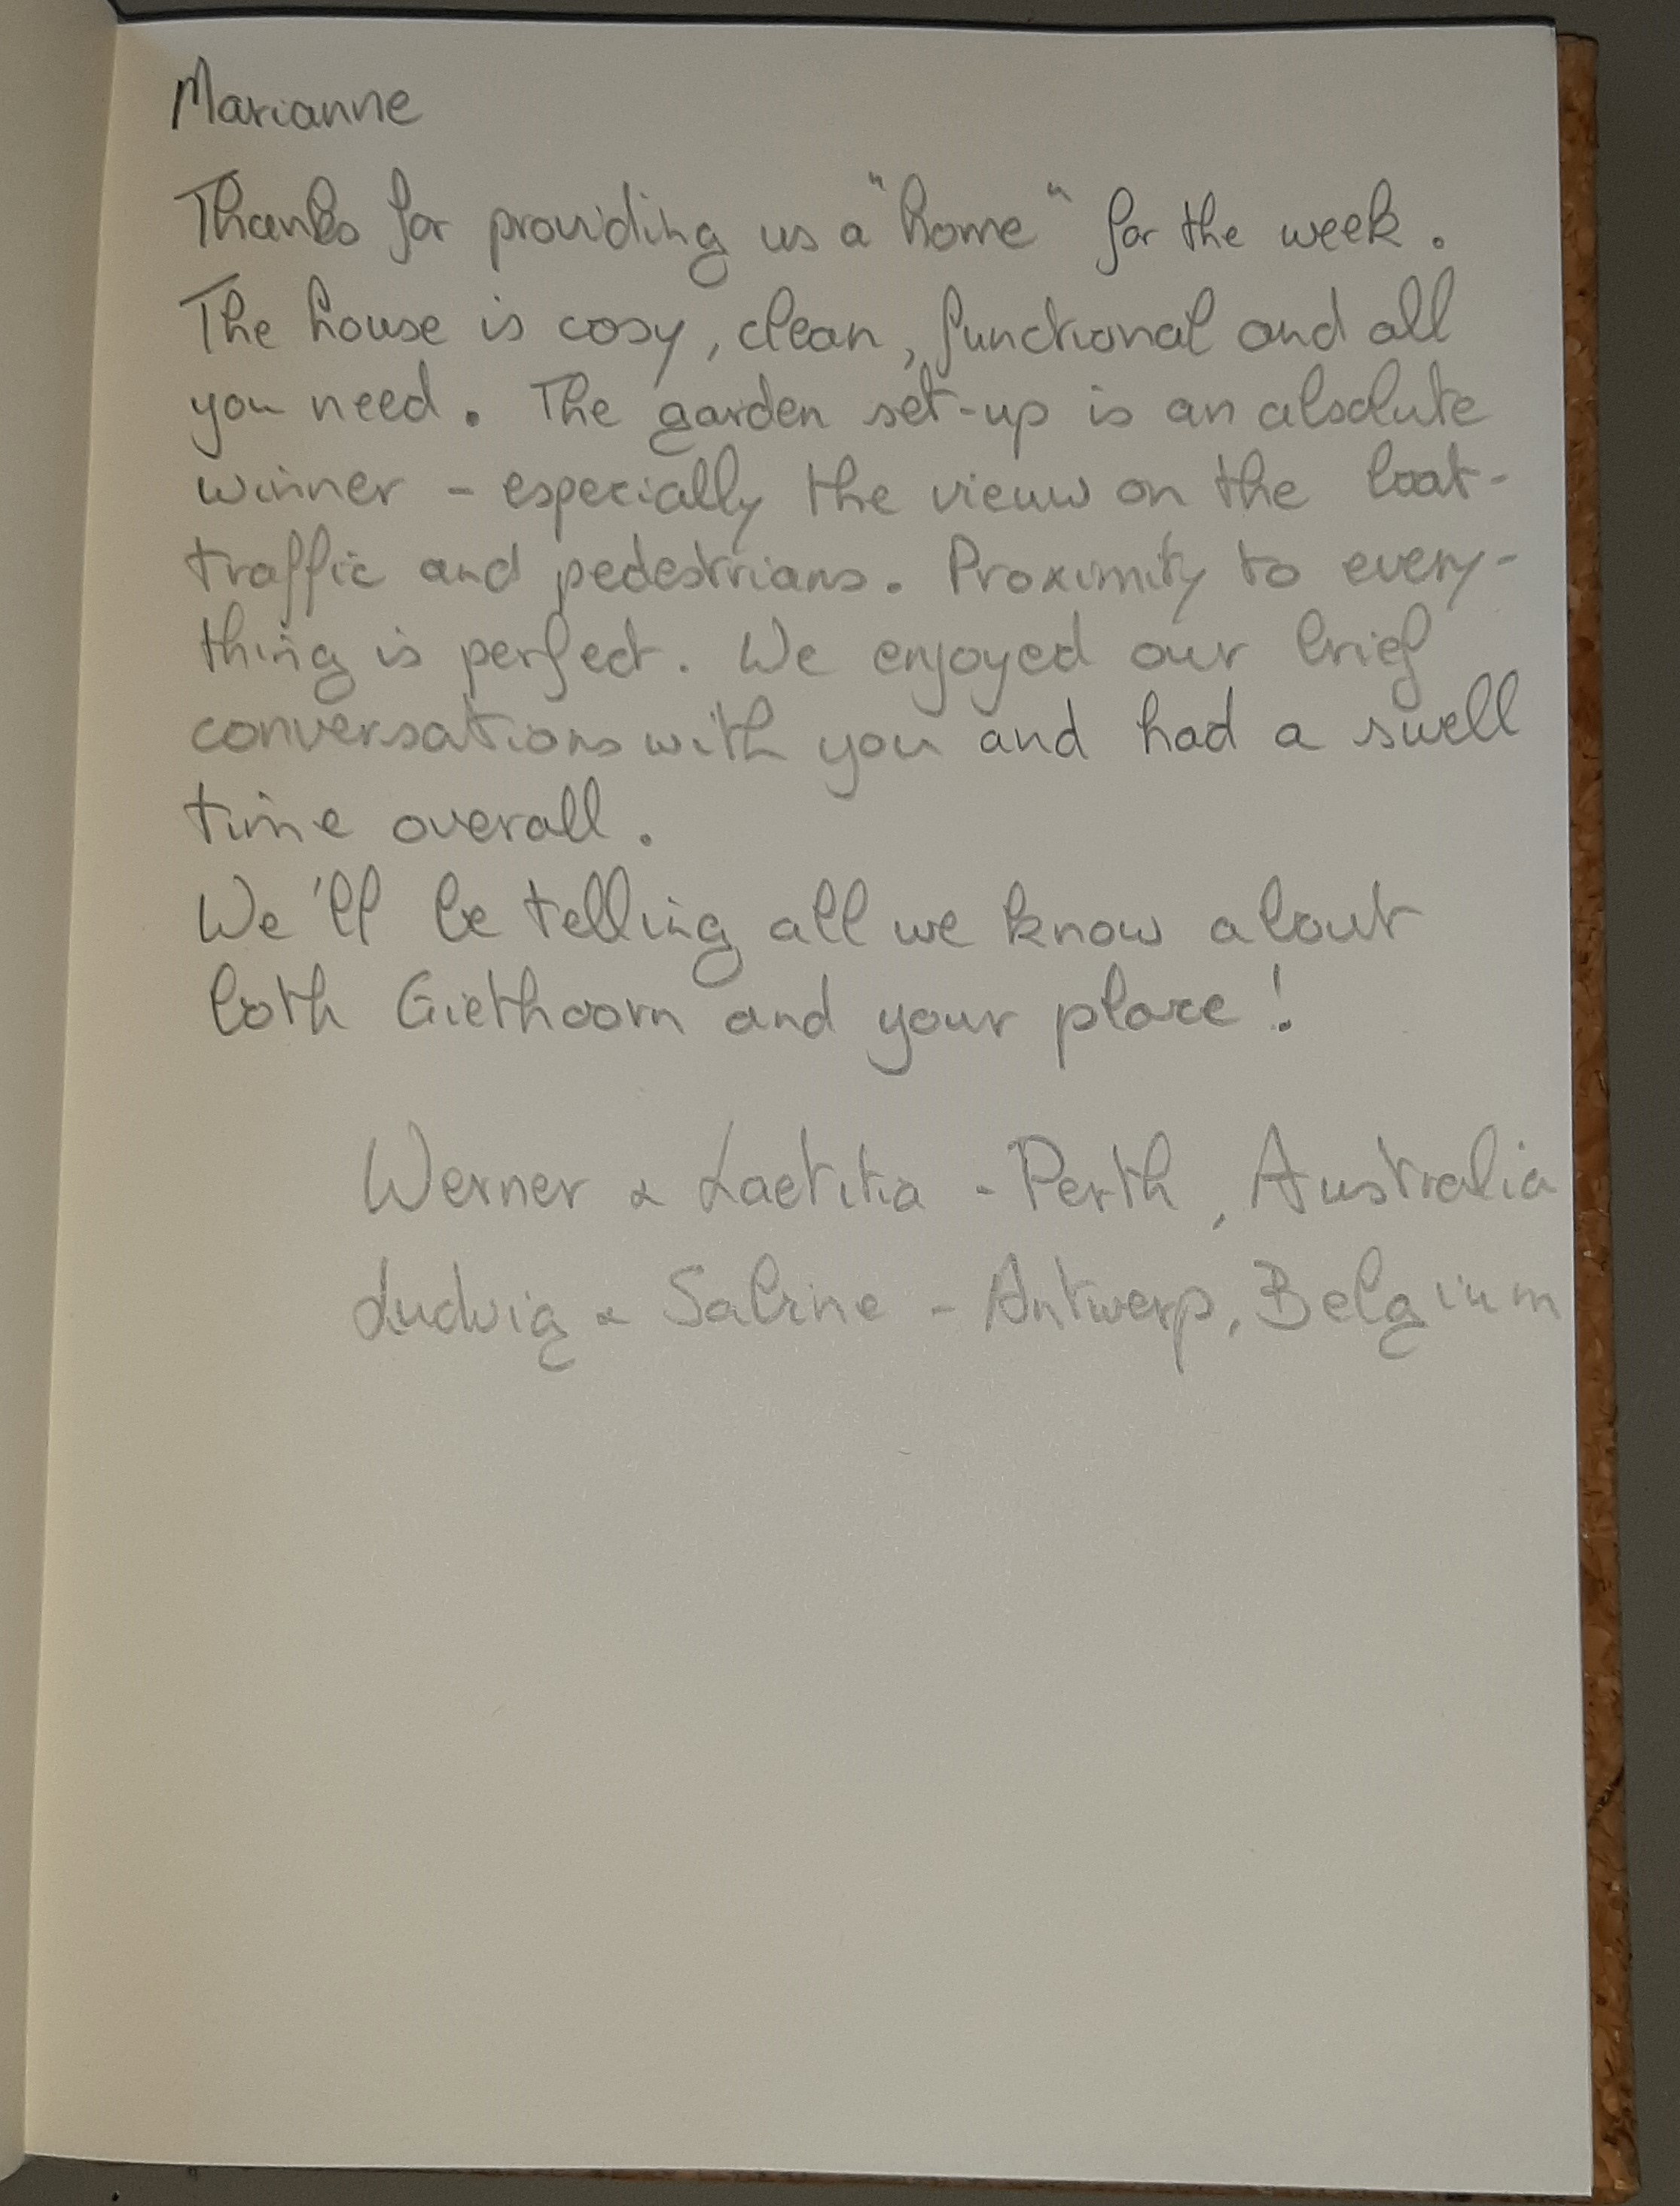 Marianne
Thanks for providing us a "home" for the week.
The house is cosy, clean, functional and all
you need. The garden set-up is an absolute
winner - especially the view on the boat-
traffic and pedestrians. Proximity to every-
thing is perfect. We enjoyed our brief
conversations with you and had a swell
time overall.
We'll be telling all we know about
both Giethoorn and your place!
Werner & Laetitia - Perth, Australia
Ludwig & Sabine - Antwerp, Belgium